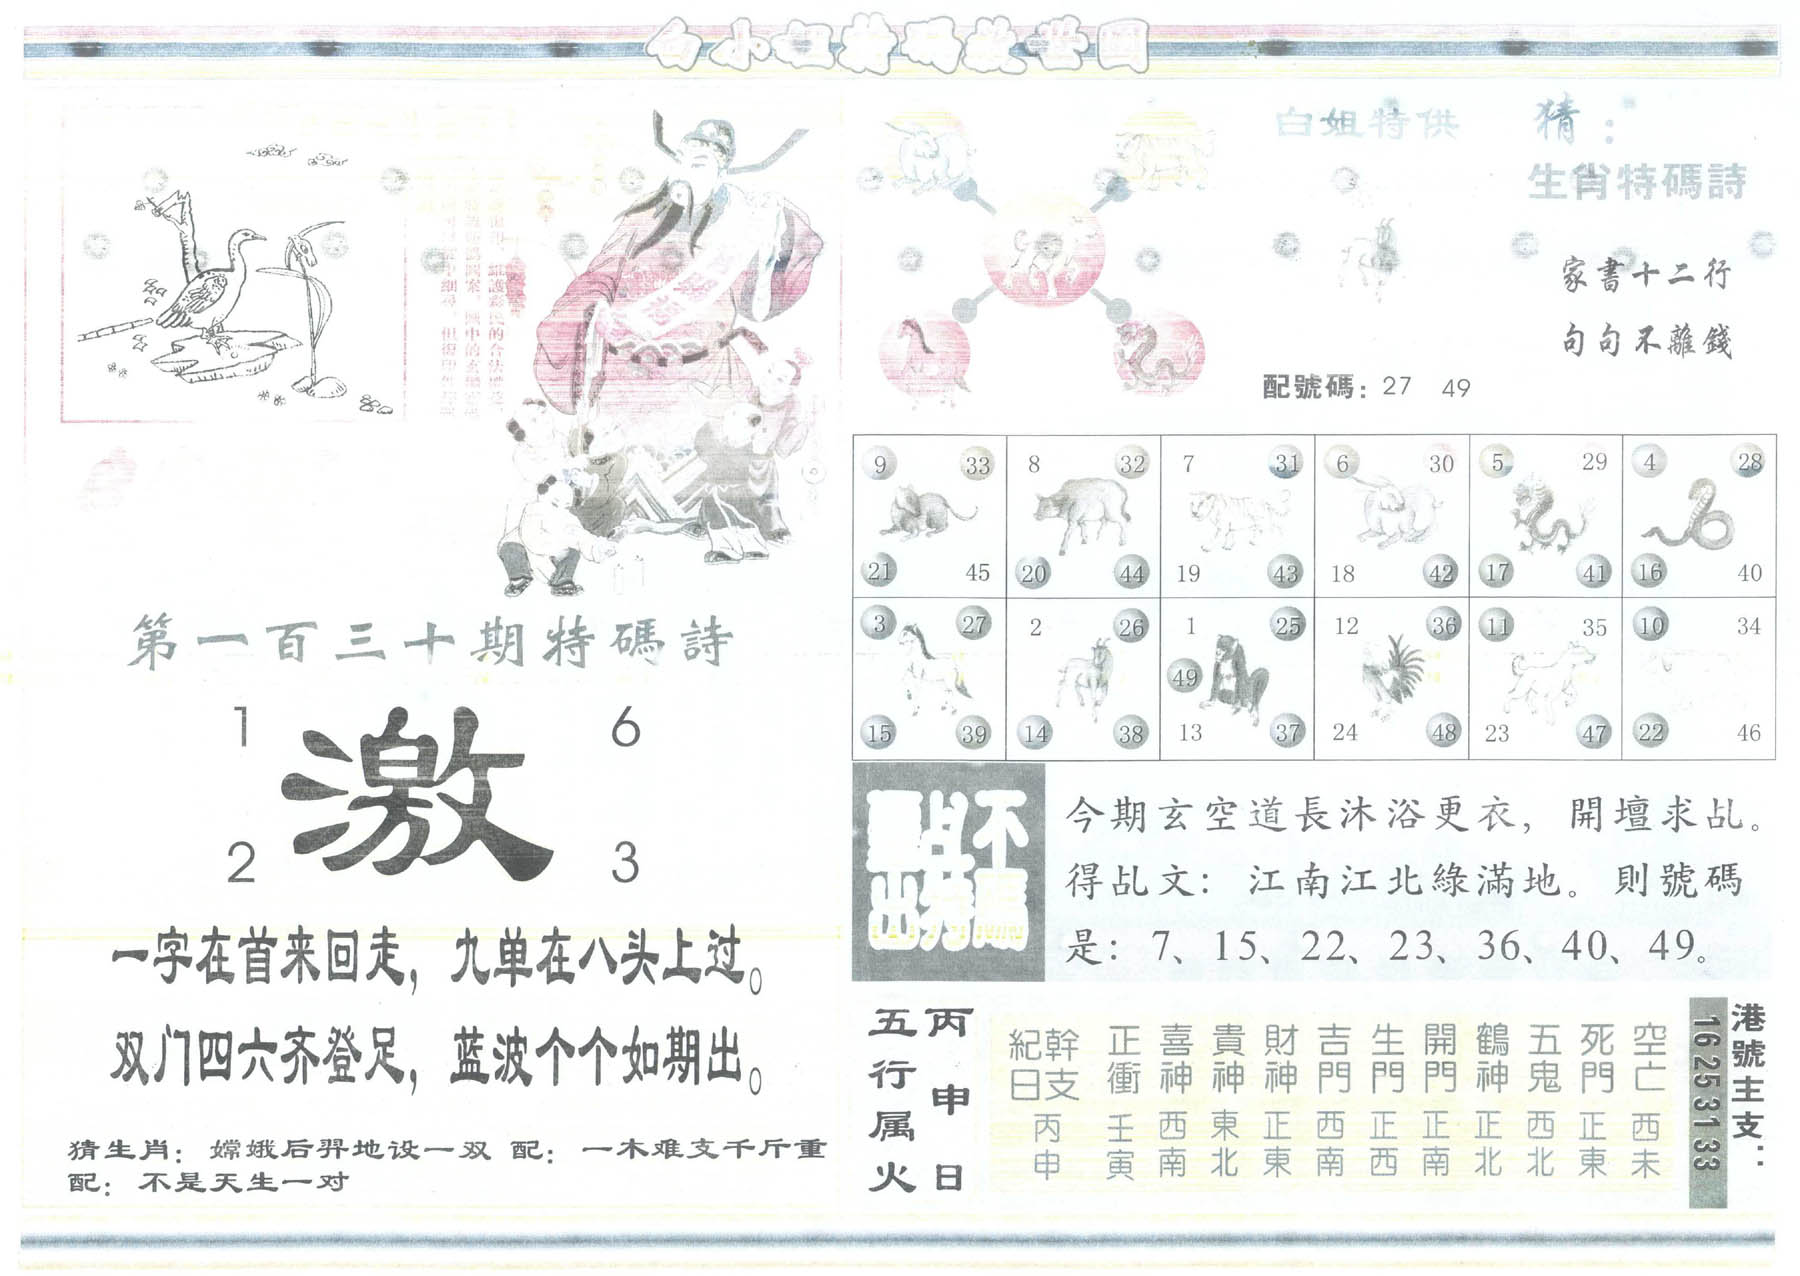 白小姐特碼救世圖
白姐特供 猜：
生肖特碼詩
家書十二行
句句不離錢
配號碼：27 49
9 33 8 32 7 31 6 30 5 29 4 28
21 45 20 44 19 43 18 42 17 41 16 40
3 27 2 26 1 25 12 36 11 35 10 34
49
15 39 14 38 13 37 24 48 23 47 22 46
第一百三十期特碼詩
1 6
激
2 3
一字在首来回走，九单在八头上过。
双门四六齐登足，蓝波个个如期出。
猜生肖：嫦娥后羿地设一双 配：一木难支千斤重
配：不是天生一对
不騙
占特
點出
今期玄空道長沐浴更衣，開壇求乩。
得乩文：江南江北綠滿地。則號碼
是：7、15、22、23、36、40、49。
丙申日
五行属火
幹支紀日 正衝 喜神 貴神 財神 吉門 生門 開門 鶴神 五鬼 死門 空亡
丙申 壬寅 西南 東北 正東 西南 正西 正南 正北 西北 正東 西未
港號主支：
16 25 31 33